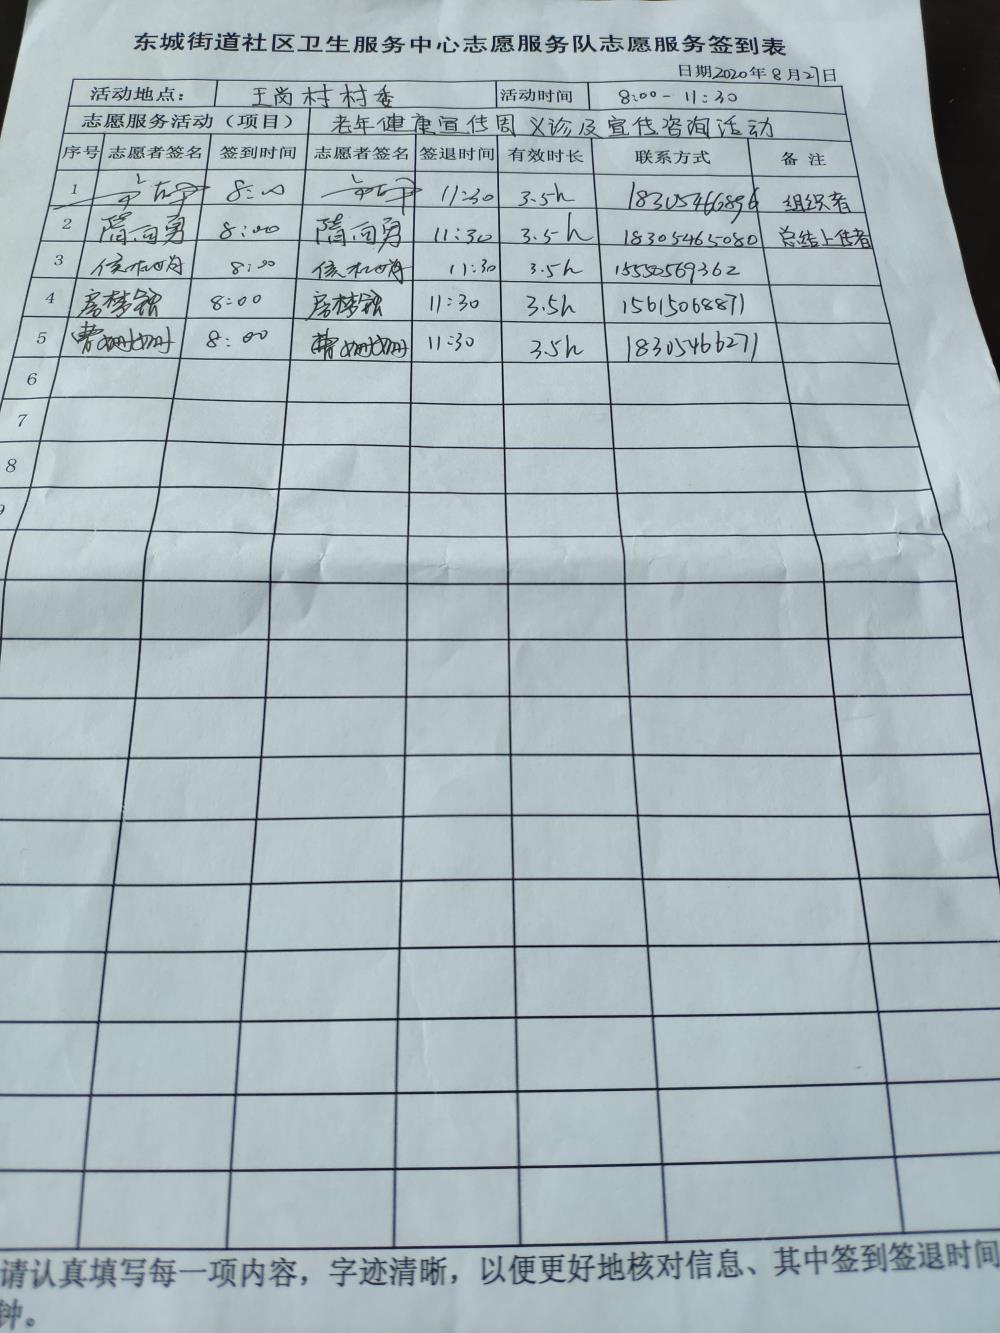 东城街道社区卫生服务中心志愿服务队志愿服务签到表
日期2020年8月27日
活动地点： 王岗村村委 活动时间 8:00-11:30
志愿服务活动（项目） 老年健康宣传周义诊及宣传咨询活动
序号 志愿者签名 签到时间 志愿者签名 签退时间 有效时长 联系方式 备注
1 8:00 11:30 3.5h 18305466896 组织者
2 隋向勇 8:00 隋向勇 11:30 3.5h 18305465080 总结上传者
3 8:00 11:30 3.5h 15550569362
4 房梦 8:00 房梦 11:30 3.5h 15615068871
5 曹姗姗 8:00 曹姗姗 11:30 3.5h 18305466271
6
7
8
9
请认真填写每一项内容，字迹清晰，以便更好地核对信息、其中签到签退时间
钟。